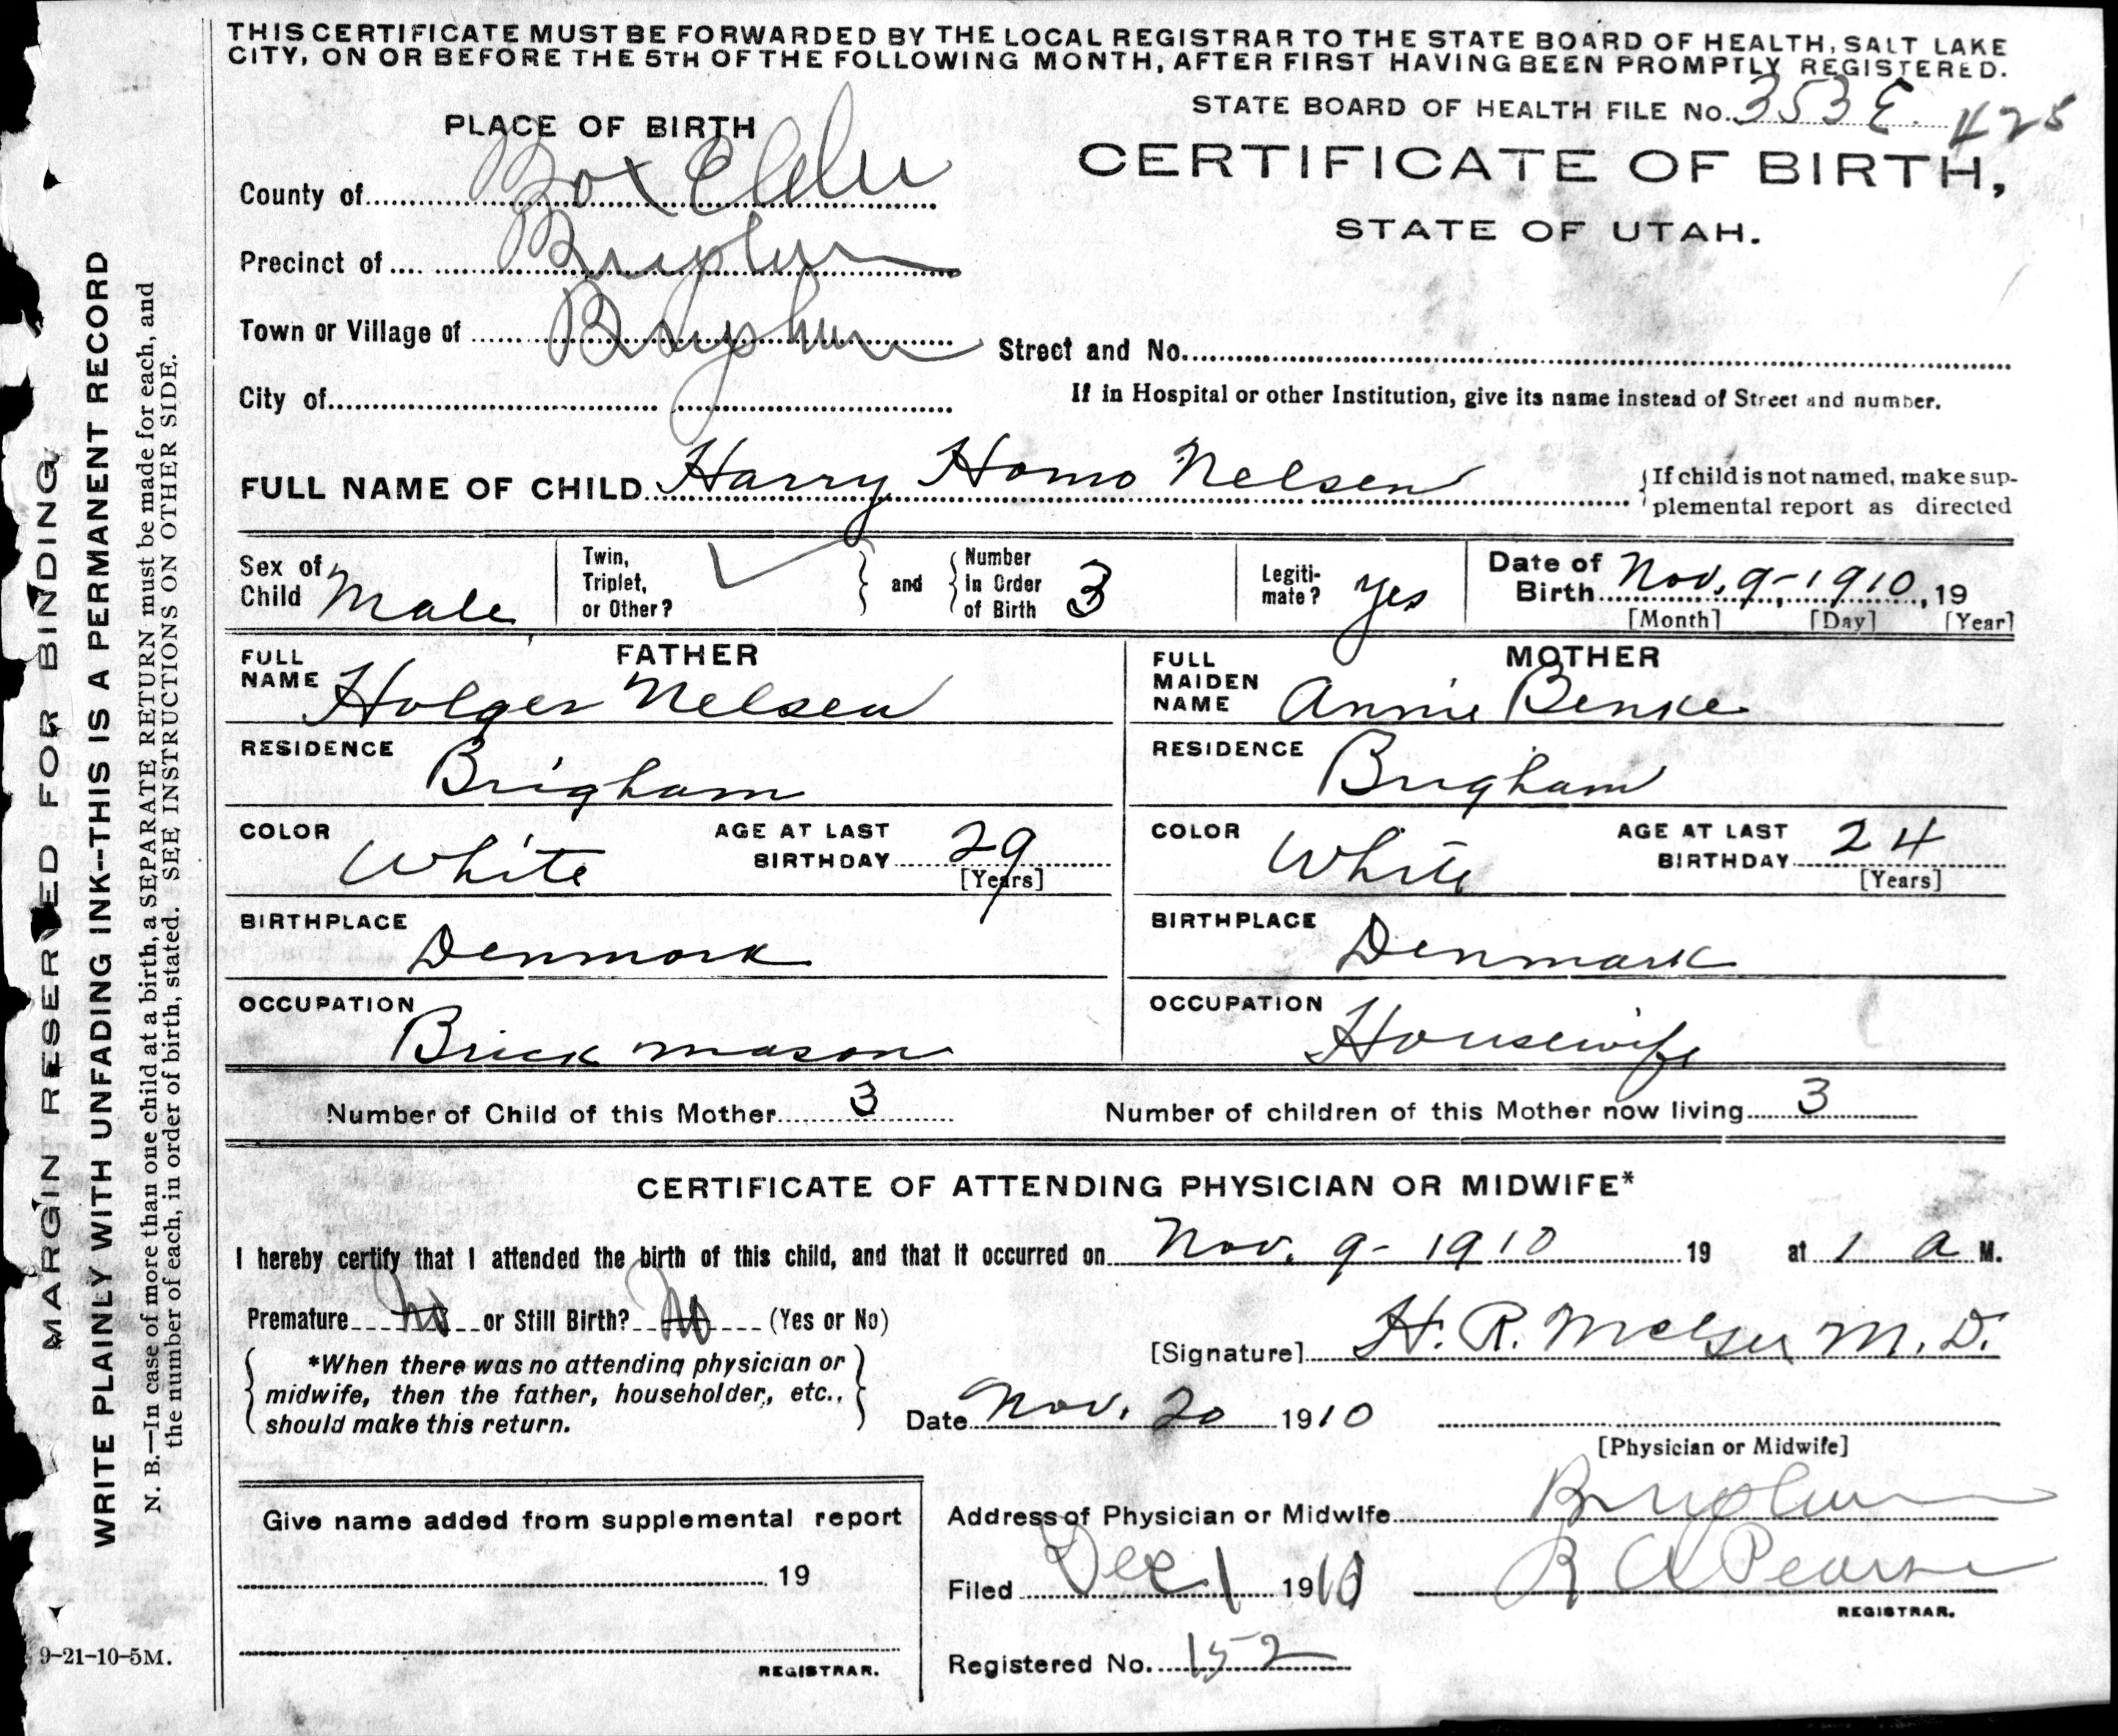 THIS CERTIFICATE MUST BE FORWARDED BY THE LOCAL REGISTRAR TO THE STATE BOARD OF HEALTH, SALT LAKE
CITY, ON OR BEFORE THE 5TH OF THE FOLLOWING MONTH, AFTER FIRST HAVING BEEN PROMPTLY REGISTERED.
STATE BOARD OF HEALTH FILE No. 353 E. 425
PLACE OF BIRTH
CERTIFICATE OF BIRTH,
STATE OF UTAH.
County of Box Elder
Precinct of Brigham
Town or Village of Brigham
Street and No.
City of
If in Hospital or other Institution, give its name instead of Street and number.
FULL NAME OF CHILD Harry Homo Nelsen
If child is not named, make sup-
plemental report as directed
Sex of Child Male
Twin, Triplet, or Other?
and
Number in Order of Birth 3
Legiti-
mate? yes
Date of Birth Nov. 9-1910, 19
[Month] [Day] [Year]
FATHER
FULL NAME Holger Nelsen
RESIDENCE Brigham
COLOR White
AGE AT LAST BIRTHDAY 29
[Years]
BIRTHPLACE Denmark
OCCUPATION Brick mason
MOTHER
FULL MAIDEN NAME Annie Benke
RESIDENCE Brigham
COLOR White
AGE AT LAST BIRTHDAY 24
[Years]
BIRTHPLACE Denmark
OCCUPATION Housewife
Number of Child of this Mother 3
Number of children of this Mother now living 3
CERTIFICATE OF ATTENDING PHYSICIAN OR MIDWIFE*
I hereby certify that I attended the birth of this child, and that it occurred on Nov. 9-1910 19 at 1 a M.
Premature No or Still Birth? No (Yes or No)
*When there was no attending physician or
midwife, then the father, householder, etc.,
should make this return.
[Signature] H. R. M.D.
Date Nov. 20 1910
[Physician or Midwife]
Give name added from supplemental report
19
REGISTRAR.
Address of Physician or Midwife Brigham
Filed Dec 1 1910
R A Pearse
REGISTRAR.
Registered No. 152
MARGIN RESERVED FOR BINDING
WRITE PLAINLY WITH UNFADING INK--THIS IS A PERMANENT RECORD
N. B.—In case of more than one child at a birth, a SEPARATE RETURN must be made for each, and
the number of each, in order of birth, stated. SEE INSTRUCTIONS ON OTHER SIDE.
9-21-10-5M.